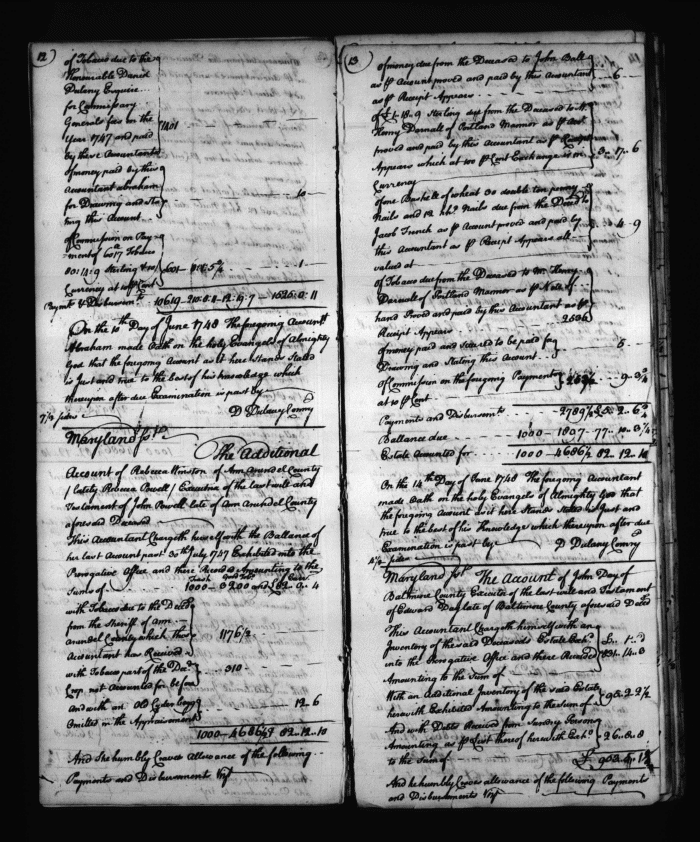 12
of Tobacco due to the
Honourable Daniel
Dulany Esquire
for Commissary
Generals fees on the
Year 1747 and paid
by these Accountants
of money paid by this
Accountant Abraham
for Drawing and Sta
ting this Account
10
of Commission on Pay
ment of 6017 Tobacco
80:14:9 Sterling
Currency at 10 P Cent
Paymts & Disbursemts
On the 10th Day of June 1748 The foregoing Accountt
Abraham made Oath on the holy Evangels of Almighty
God that the foregoing Account as it here Stands Stated
is Just and true to the best of his knowledge which
thereupon after due Examination is past by
D Dulany Comry
7½ sides
Maryland sst.
The Additional
Account of Rebecca Winston of Ann Arundel County
/ Lately Rebecca Powell / Executrix of the last will and
Testament of John Powell late of Ann Arundel County
aforesaid Deceased
This Accountant Chargeth herself with the Ballance of
her last Account past 30th July 1747 Exhibited into the
Prerogative Office and there Record Amounting to the
Sums of 1000 3200 and 82.0.4
with Tobacco due to the Deced
from the Sheriff of Ann
Arundel County which this
Accountant has Received
1176½
with Tobacco part of the Deced
Crop not Accounted for before
310
And with an Old
Omitted in the Appraisement
12.6
1000 4686½ 82.12.10
And She humbly Craves Allowance of the following
Payments and Disbursement Vizt
13
of money due from the Deceased to John Ball
as P Account proved and paid by this Accountant
as P Receipt Appears
6
of £1.18.9 Sterling due from the Deceased to Mr
Henry Darnale of Portland Mannor as P Acct
proved and paid by this Accountant as P Receipt
Appears which at 100 P Cent Exchange is in
Currency
3.17.6
of one Bushell of wheat 30 double ten penny
Nails and 12 Nails due from the Deced to
Jacob French as P Account proved and paid by
this Accountant as P Receipt Appears all
valued at
4.9
of Tobacco due from the Deceased to Mr Henry
Darnale of Portland Mannor as P Note of
hand Proved and paid by this Accountant as P
Receipt Appears
2536
of money paid and Secured to be paid for
Drawing and Stating this Account
5
of Commission on the foregoing Payments
at 10 P Cent
9.3¾
Payments and Disbursemts
2789½ £5.2.6¾
Ballance due 1000 1897 77.10.3¼
Estate Accounted for 1000 4686½ 82.12.10
On the 14th Day of June 1748 The foregoing Accountant
made Oath on the holy Evangels of Almighty God that
the foregoing Account as it here Stands Stated is Just and
true to the best of his Knowledge which thereupon after due
Examination is past by
D Dulany Comry
Maryland sst. The Account of John Day of
Baltimore County Executor of the last will and Testament
of Edward Day late of Baltimore County aforesaid Deced
This Accountant Chargeth himself with an
Inventory of the said Deceaseds Estate Exhd
into the Prerogative Office and there Recorded
Amounting to the Sum of
With an Additional Inventory of the said Estate
herewith Exhibited Amounting to the Sum of
And with Debts Received from Sundry Persons
Amounting as P List thereof herewith Exhd
to the Sum of
26.8.8
And he humbly Craves allowance of the following Payments
and Disbursements Vizt